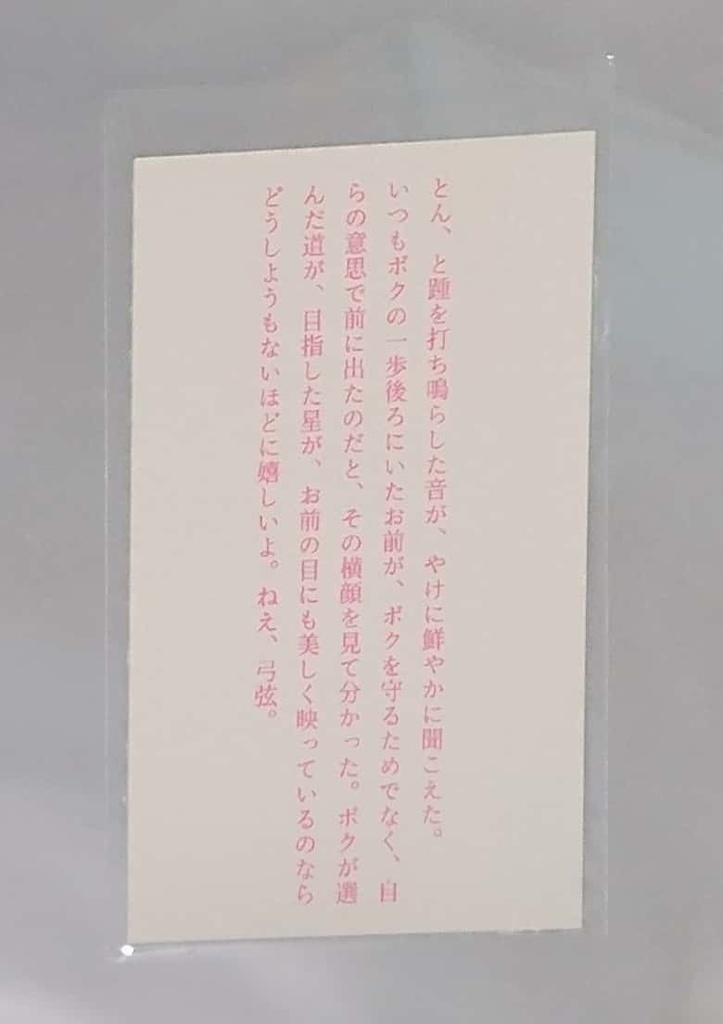 とん、と踵を打ち鳴らした音が、やけに鮮やかに聞こえた。
いつもボクの一歩後ろにいたお前が、ボクを守るためでなく、自
らの意思で前に出たのだと、その横顔を見て分かった。ボクが選
んだ道が、目指した星が、お前の目にも美しく映っているのなら
どうしようもないほどに嬉しいよ。ねえ、弓弦。